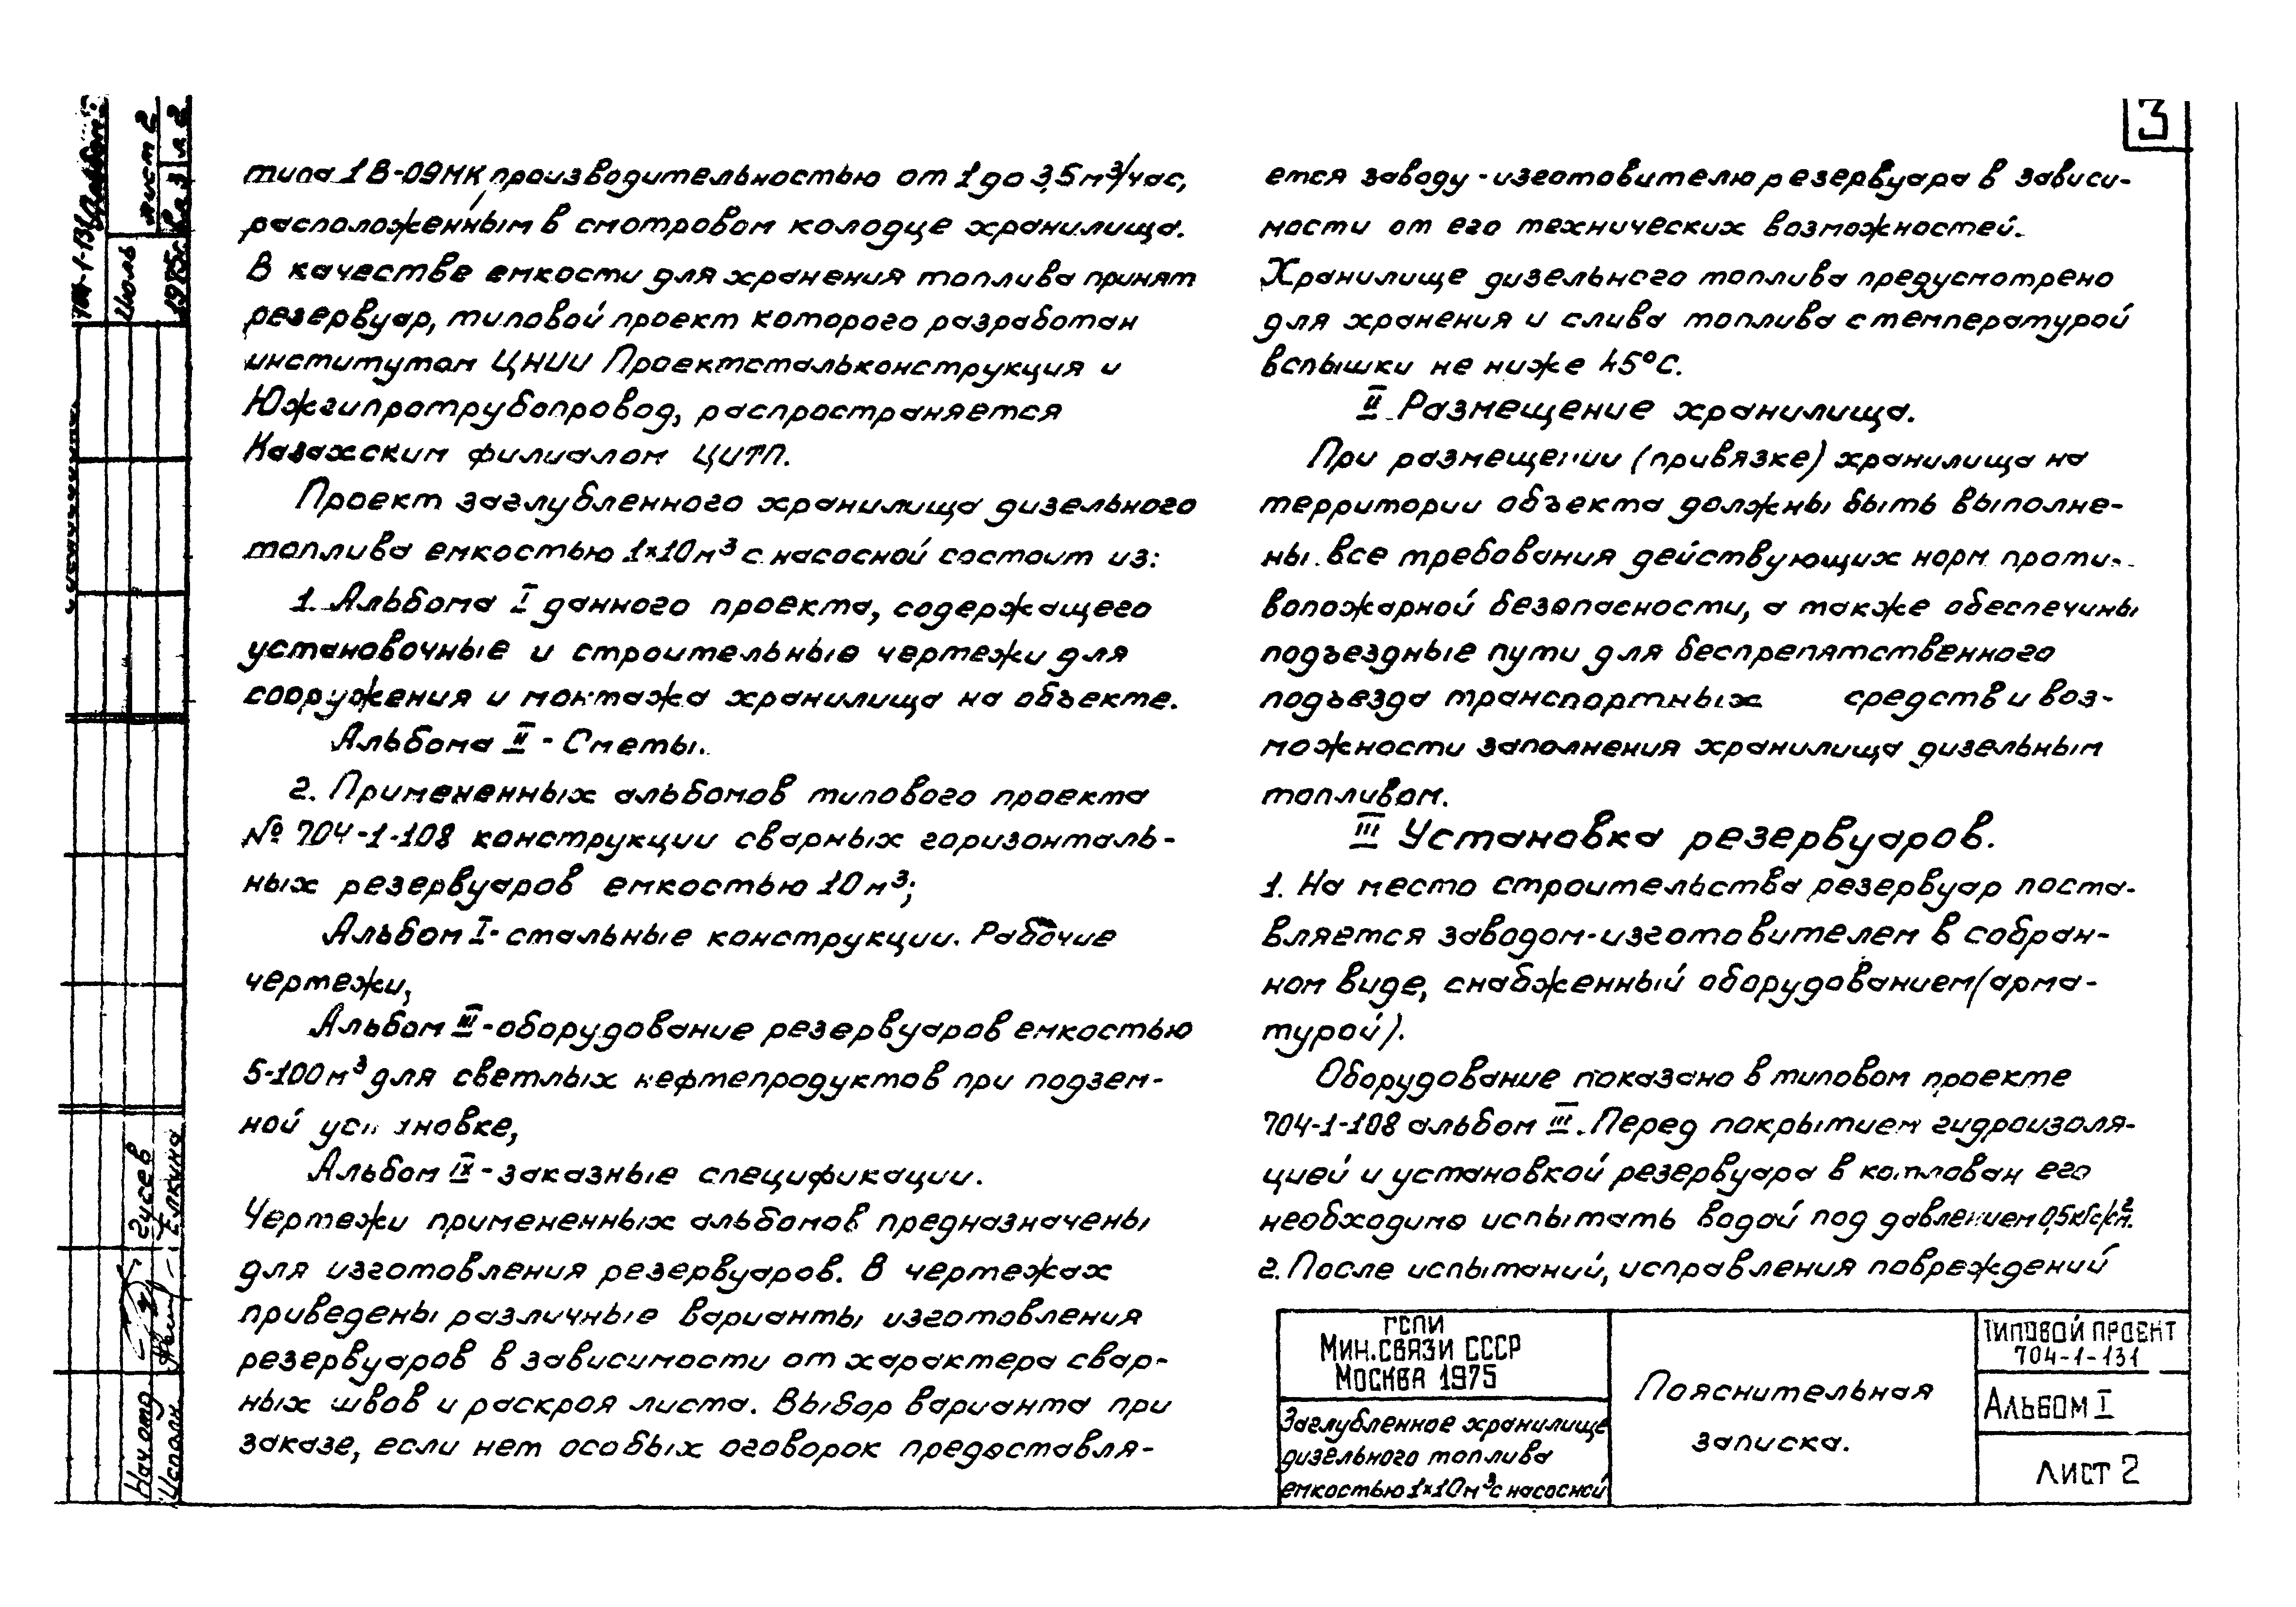 3
типа 1В-09МК производительностью от 1 до 3,5 м³/час,
расположенным в смотровом колодце хранилища.
В качестве емкости для хранения топлива принят
резервуар, типовой проект которого разработан
институтом ЦНИИ Проектстальконструкция и
Южгипротрубопровод, распространяется
Казахским филиалом ЦИТП.
Проект заглубленного хранилища дизельного
топлива емкостью 1×10 м³ с насосной состоит из:
1. Альбома I данного проекта, содержащего
установочные и строительные чертежи для
сооружения и монтажа хранилища на объекте.
Альбома II - Сметы.
2. Примененных альбомов типового проекта
№ 704-1-108 конструкции сварных горизонталь-
ных резервуаров емкостью 10 м³;
Альбом I - стальные конструкции. Рабочие
чертежи,
Альбом III - оборудование резервуаров емкостью
5-100 м³ для светлых нефтепродуктов при подзем-
ной установке,
Альбом IX - заказные спецификации.
Чертежи примененных альбомов предназначены
для изготовления резервуаров. В чертежах
приведены различные варианты изготовления
резервуаров в зависимости от характера свар-
ных швов и раскроя листа. Выбор варианта при
заказе, если нет особых оговорок предоставля-
ется заводу-изготовителю резервуара в зависи-
мости от его технических возможностей.
Хранилище дизельного топлива предусмотрено
для хранения и слива топлива с температурой
вспышки не ниже 45°С.
II Размещение хранилища.
При размещении (привязке) хранилища на
территории объекта должны быть выполне-
ны все требования действующих норм проти-
вопожарной безопасности, а также обеспечины
подъездные пути для беспрепятственного
подъезда транспортных средств и воз-
можности заполнения хранилища дизельным
топливом.
III Установка резервуаров.
1. На место строительства резервуар поста-
вляется заводом-изготовителем в собран-
ном виде, снабженный оборудованием (арма-
турой).
Оборудование показано в типовом проекте
704-1-108 альбом III. Перед покрытием гидроизоля-
цией и установкой резервуара в котлован его
необходимо испытать водой под давлением 0,5 кгс/см².
2. После испытаний, исправления повреждений
ГСПИ
Мин.связи СССР
Москва 1975
Заглубленное хранилище
дизельного топлива
емкостью 1×10 м³ с насосной
Пояснительная
записка.
Типовой проект
704-1-131
Альбом I
Лист 2
704-1-131 Альбом
Июль
1975г.
лист 2
Нач отд
Гусев
Исполн
Елкина